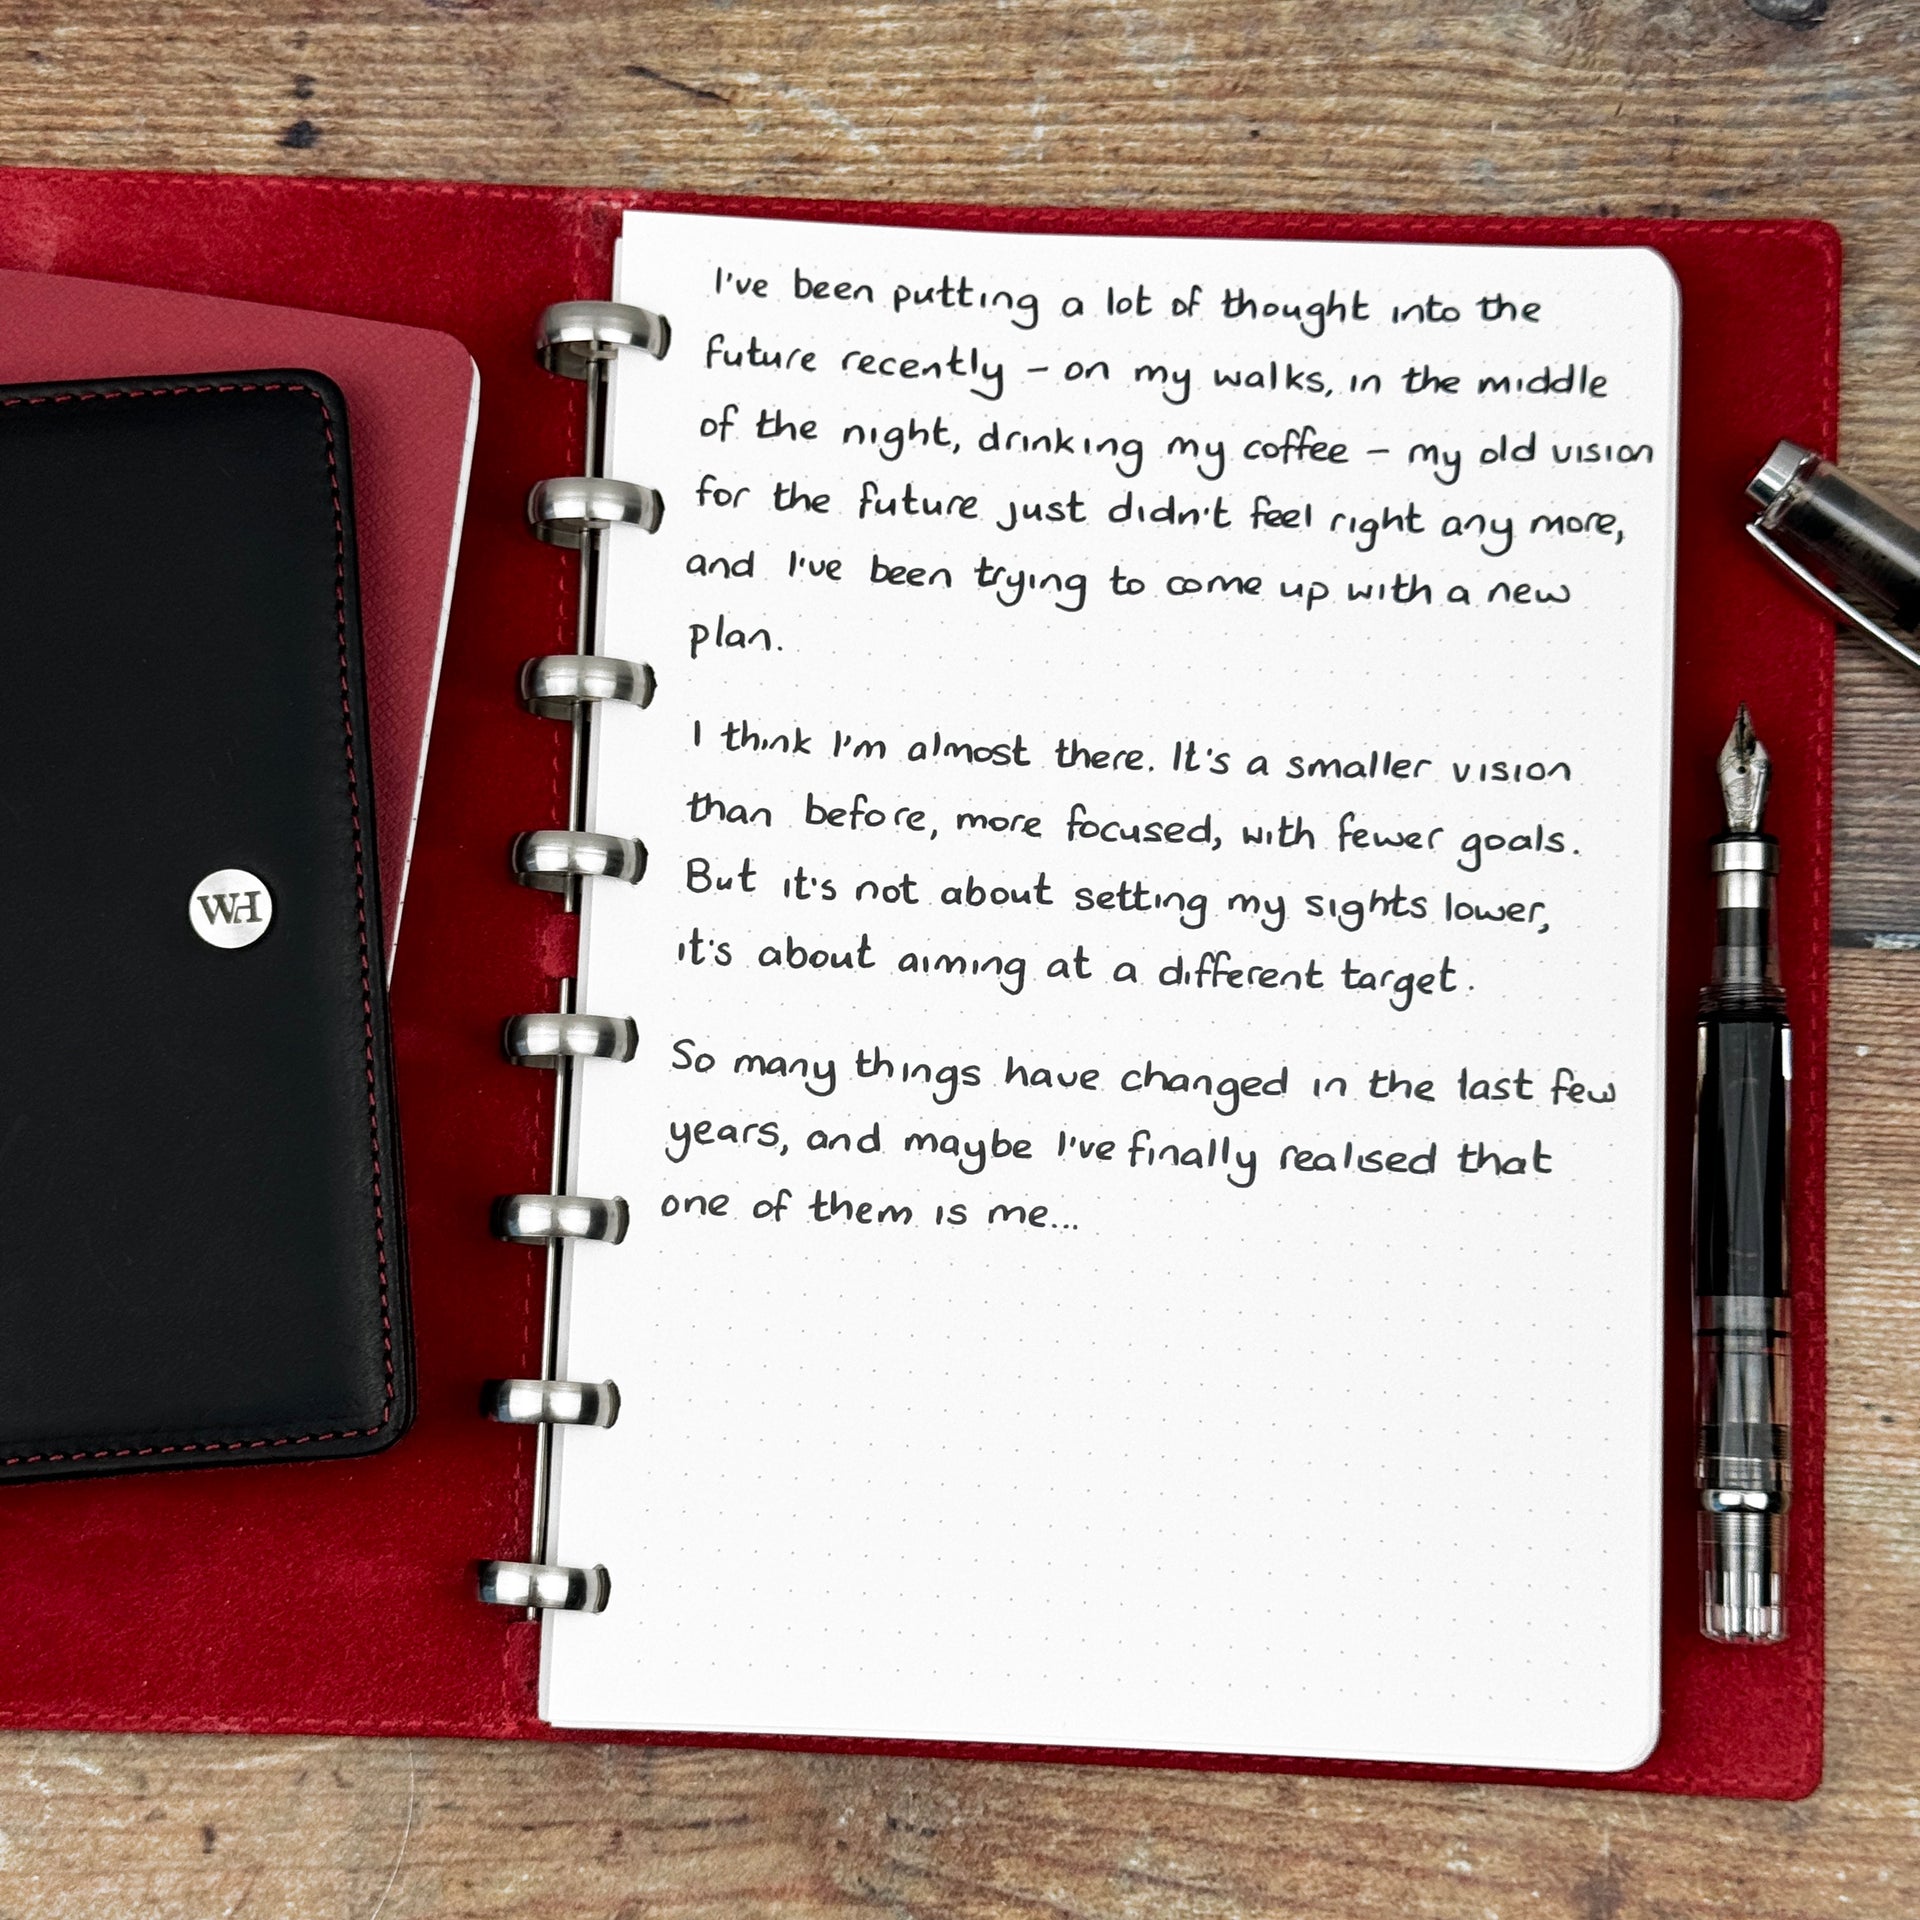 I've been putting a lot of thought into the
future recently – on my walks, in the middle
of the night, drinking my coffee – my old vision
for the future just didn't feel right any more,
and I've been trying to come up with a new
plan.
I think I'm almost there. It's a smaller vision
than before, more focused, with fewer goals.
But it's not about setting my sights lower,
it's about aiming at a different target.
So many things have changed in the last few
years, and maybe I've finally realised that
one of them is me...
WH